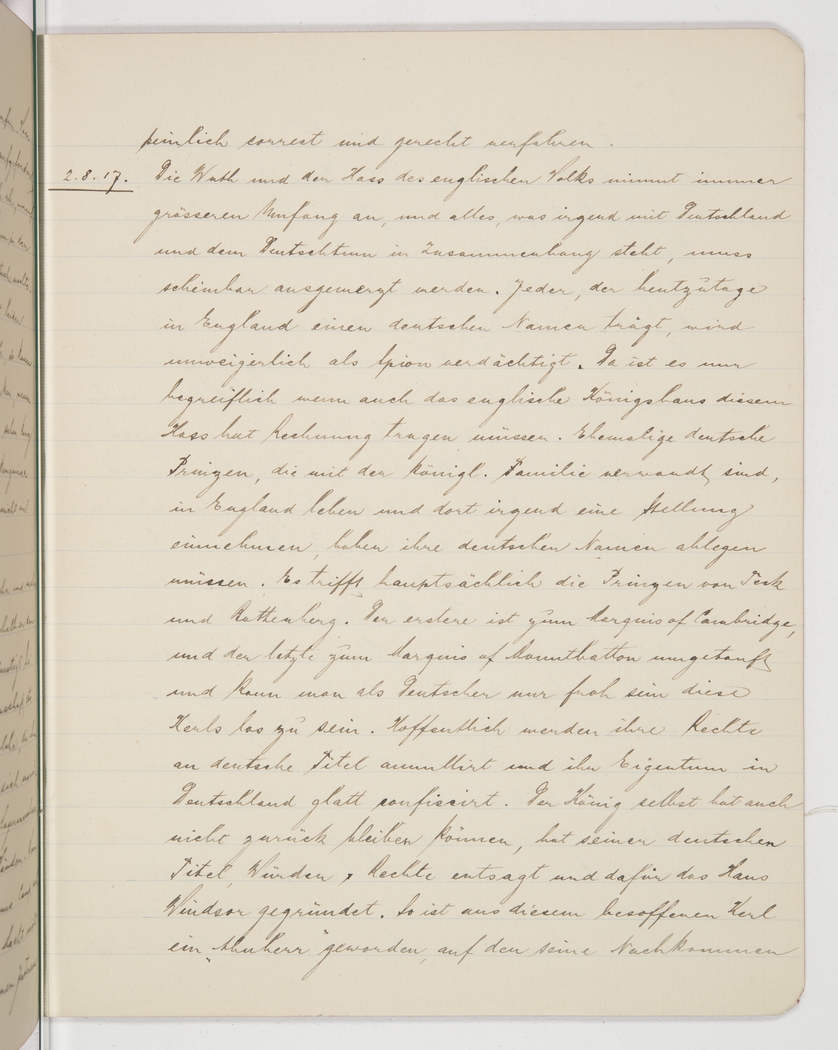 peinlich correct und gerecht verfahren.
2.8.17. Die Wuth und der Hass des englischen Volks nimmt immer
grösseren Umfang an, und alles, was irgend mit Deutschland
und dem Deutschtum in Zusammenhang steht, muss
scheinbar ausgemerzt werden. Jeder, der heutzutage
in England einen deutschen Namen trägt, wird
unweigerlich als Spion verdächtigt. Da ist es nur
begreiflich wenn auch das englische Königshaus diesem
Hass hat Rechnung tragen müssen. Ehemalige deutsche
Prinzen, die mit der Königl. Familie verwandt sind,
in England leben und dort irgend eine Stellung
einnehmen, haben ihre deutschen Namen ablegen
müssen. Es trifft hauptsächlich die Prinzen von Teck
und Battenberg. Der erstere ist zum Marquis of Cambridge,
und der letzte zum Marquis of Mountbatton umgetauft
und kann man als Deutscher nur froh sein diese
Kerls los zu sein. Hoffentlich werden ihre Rechte
an deutsche Titel annullirt und ihr Eigentum in
Deutschland glatt confiscirt. Der König selbst hat auch
nicht zurück bleiben können, hat seinen deutschen
Titel, Würden & Rechte entsagt und dafür das Haus
Windsor gegründet. So ist aus diesem besoffenen Kerl
ein „Ahnherr" geworden, auf den seine Nachkommen